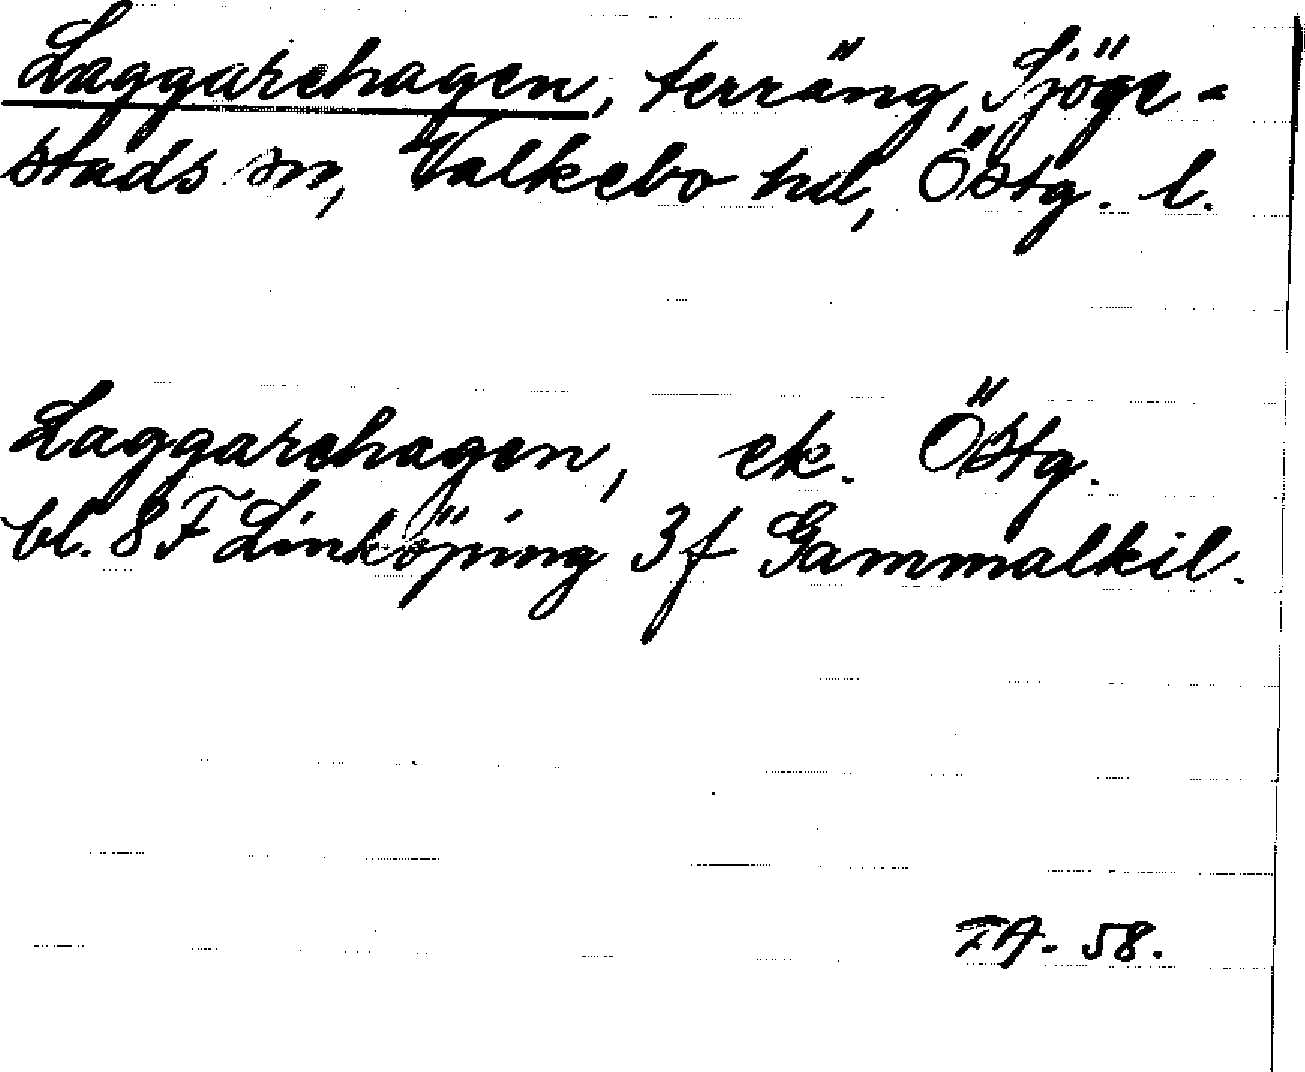 Laggarehagen, terräng, Sjöge-
stads sn, Valkebo hd, Östg. l.
Laggarehagen, ek. Östg.
bl. 8F Linköping 3f Gammalkil.
IA. 58.